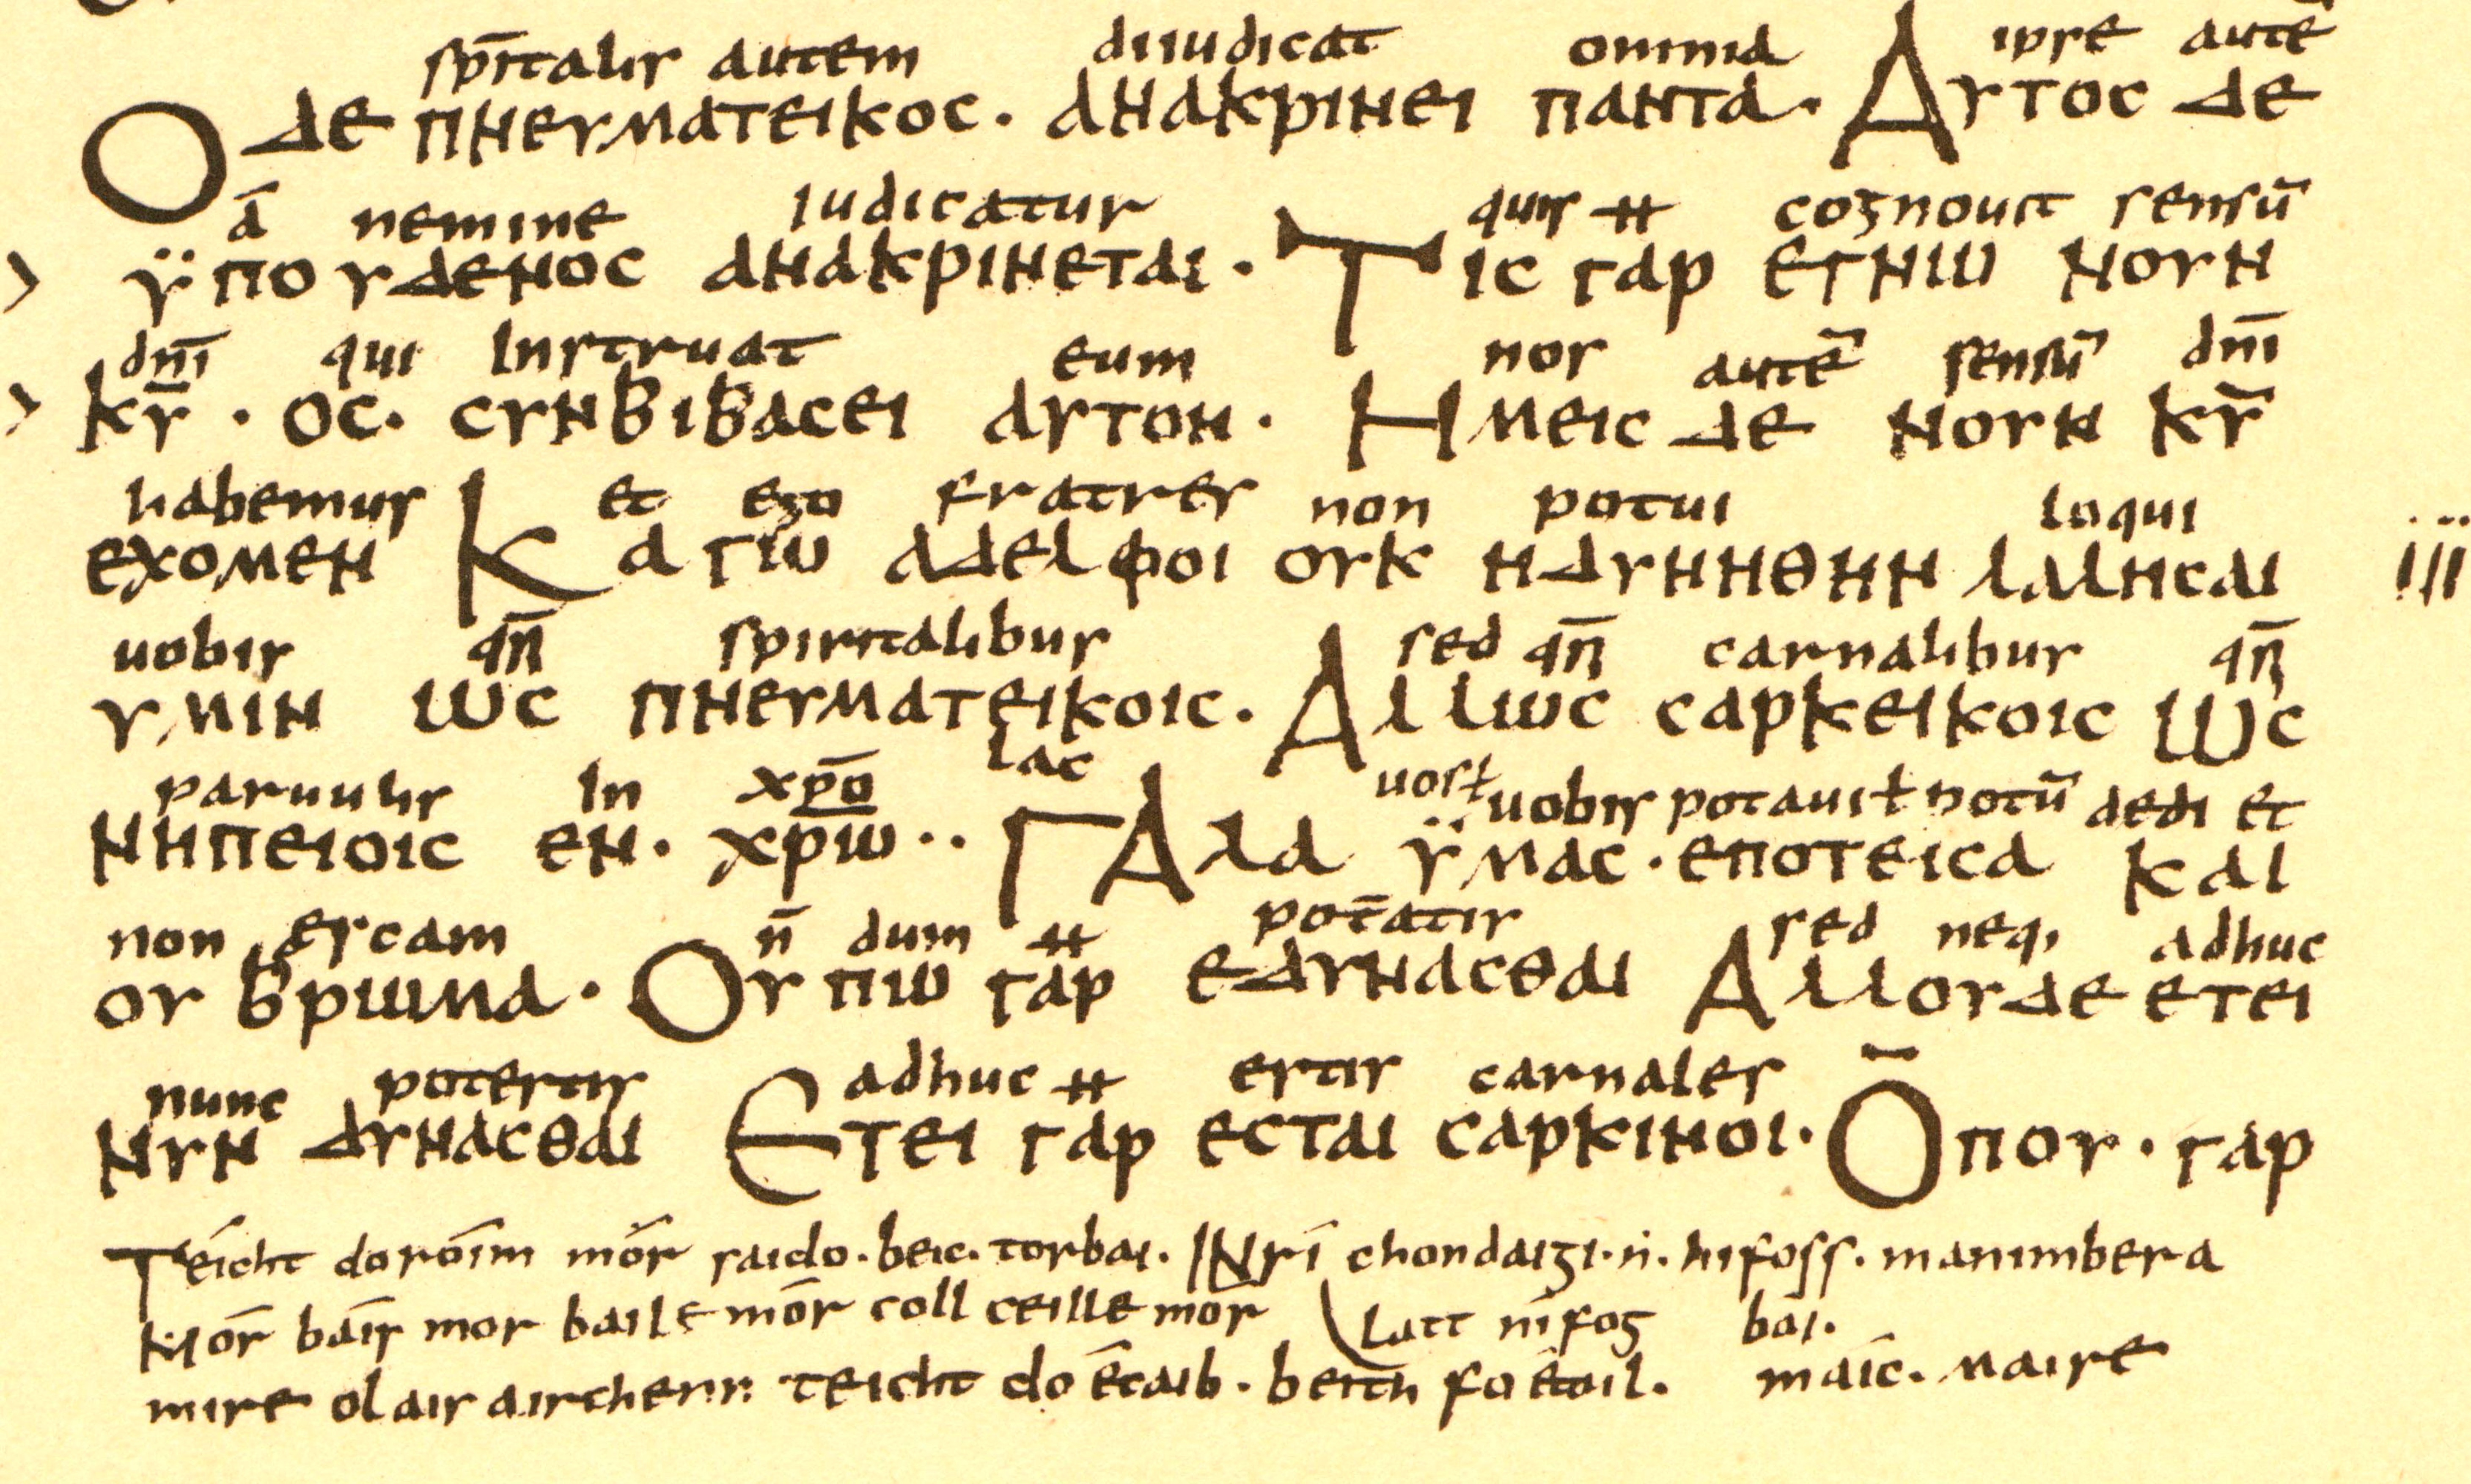 sp̄italis autem diiudicat omnia ipse autē
Ο ΔΕ ΠΝΕΥΜΑΤΕΙΚΟC· ΑΝΑΚΡΙΝΕΙ ΠΑΝΤΑ· ΑΥΤΟC ΔΕ
ā nemine iudicatur quis ++ cognouit sensū
ΫΠΟΥΔΕΝΟC ΑΝΑΚΡΙΝΕΤΑΙ· ΤΙC ΓΑΡ ΕΓΝΩ ΝΟΥΝ
dn̄i qui instruat eum nos autē sensū dn̄i
ΚῩ· ΟC· CΥΝΒΙΒΑCΕΙ ΑΥΤΟΝ· ΗΜΕΙC ΔΕ ΝΟΥΝ ΚῩ
habemus et ego fratres non potui loqui
ΕΧΟΜΕΝ ΚΑΓΩ ΑΔΕΛΦΟΙ ΟΥΚ ΗΔΥΝΗΘΗΝ ΛΑΛΗCΑΙ iii
uobis qn̄ spiritalibus sed qn̄ carnalibus qn̄
ΥΜΙΝ ΩC ΠΝΕΥΜΑΤΕΙΚΟΙC· ΑΛΛΩC CΑΡΚΕΙΚΟΙC ΩC
paruulis in xp̄o lac uos ł uobis potaui ł potū dedi et
ΝΗΠΕΙΟΙC ΕΝ· ΧΡΩ·· ΓΑΛΑ ΫΜΑC· ΕΠΟΤΕΙCΑ ΚΑΙ
non escam n̄ dum ++ potēatis sed neq, adhuc
ΟΥ ΒΡΩΜΑ· ΟΥ ΠΩ ΓΑΡ ΕΔΥΝΑCΘΑΙ ΑΛΛΟΥΔΕ ΕΤΕΙ
nunc potestis adhuc ++ estis carnales
ΝΥΝ ΔΥΝΑCΘΑΙ ΕΤΕΙ ΓΑΡ ΕCΤΑΙ CΑΡΚΙΝΟΙ· ŌΠΟΥ· ΓΑΡ
Téicht doróim mór saido· beic· torbai· INrí chondaigi· ṅ· hifoss· manimbera
Mór báis mor baile mór coll ceille mor latt nífog bái·
mire olais airchenn teicht do écaib· beith fo étoil· máic· maire